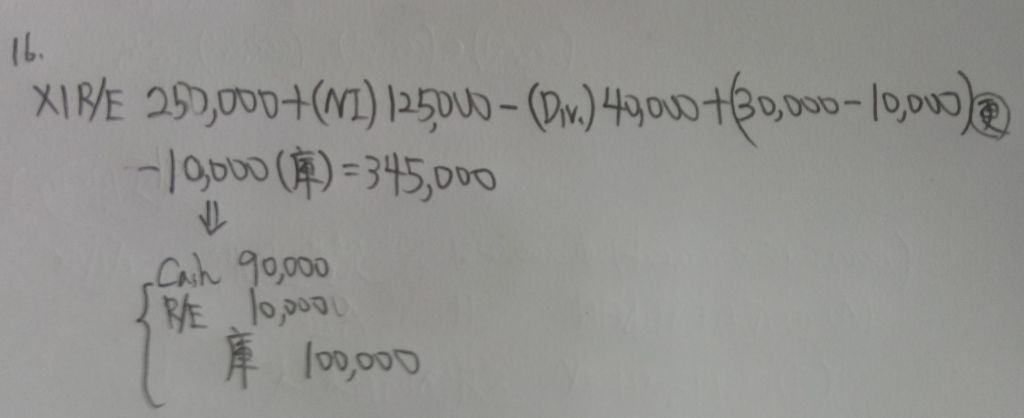 16.
X1 R/E 250,000+(NI)125,000-(Div.)40,000+(30,000-10,000)更
-10,000(庫)=345,000
⇓
Cash 90,000
R/E 10,000
庫 100,000